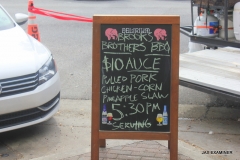 BROOKS
BROTHERS BBQ
$10 AUCE
PULLED PORK
CHICKEN-CORN
PINEAPPLE SLAW
5:30 PM
SERVING
JAX EXAMINER